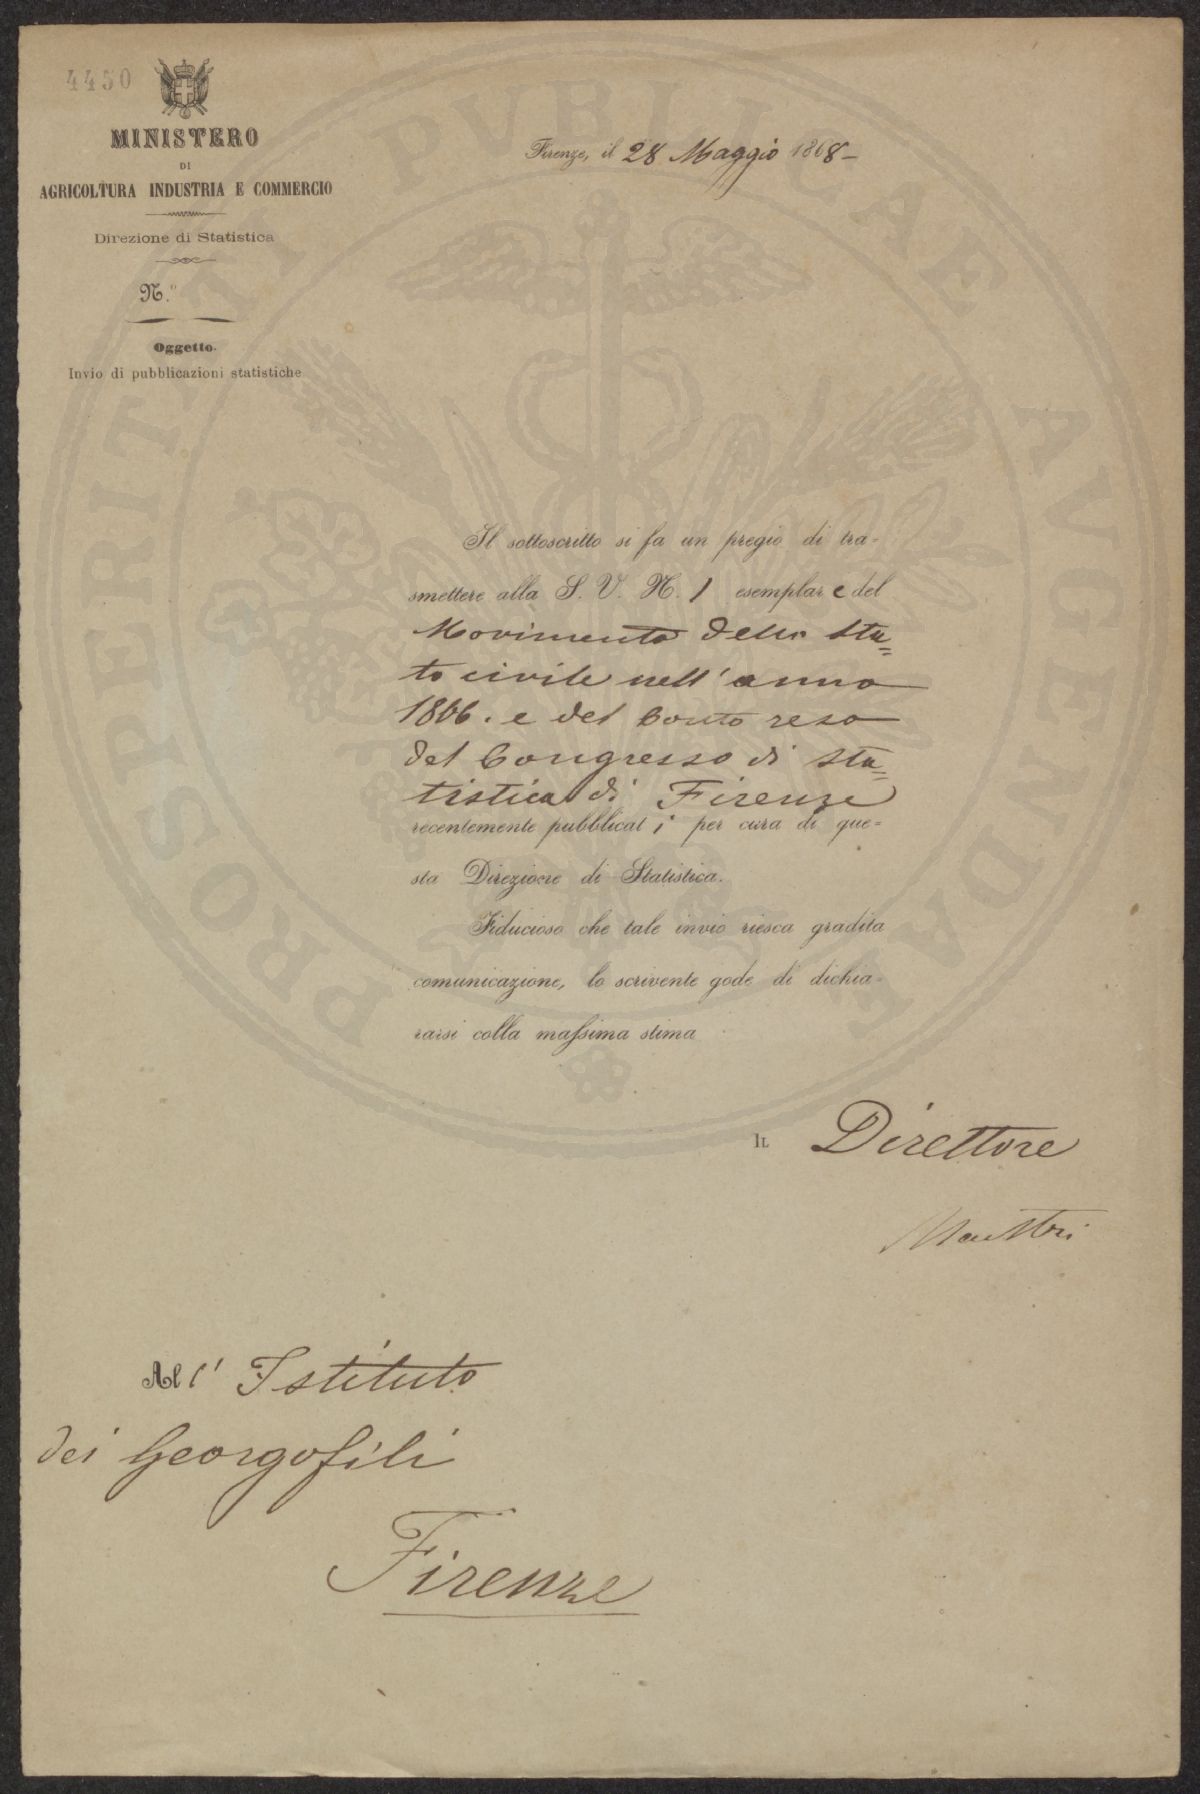 4450
MINISTERO
DI
AGRICOLTURA INDUSTRIA E COMMERCIO
Direzione di Statistica
N.º
Oggetto.
Invio di pubblicazioni statistiche
Firenze, il 28 Maggio 1868-
Il sottoscritto si fa un pregio di tra=
smettere alla S. V. N. 1 esemplare del
Movimento dello sta=
to civile nell'anno
1866. e del Conto reso
del Congresso di sta=
tistica di Firenze
recentemente pubblicati per cura di que=
sta Direzione di Statistica.
Fiducioso che tale invio riesca gradita
comunicazione, lo scrivente gode di dichia=
rarsi colla massima stima
IL Direttore
Maestri
All' Istituto
dei Georgofili
Firenze
PROSPERITATI PVBLICAE AVGENDAE